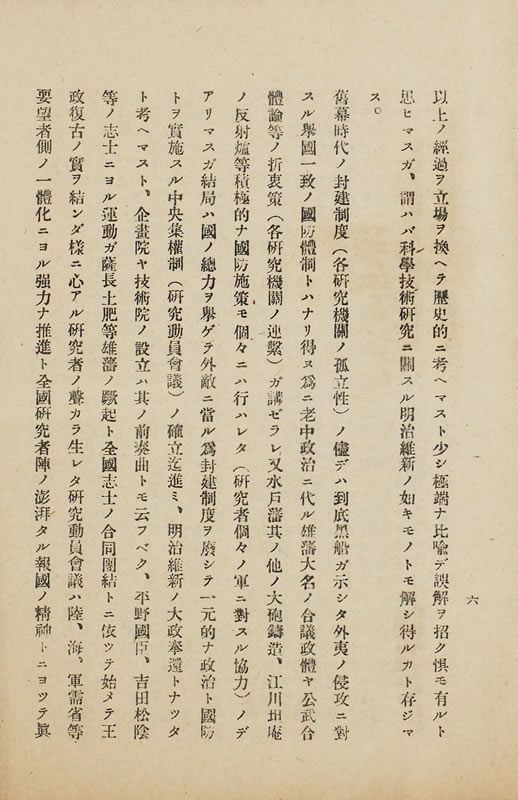 以上ノ經過ヲ立場ヲ換ヘテ歷史的ニ考ヘマスト少シ極端ナ比喩デ誤解ヲ招ク惧モ有ルト
思ヒマスガ、謂ハバ科學技術研究ニ關スル明治維新ノ如キモノトモ解シ得ルカト存ジマ
ス。
舊幕時代ノ封建制度(各研究機關ノ孤立性)ノ儘デハ到底黑船ガ示シタ外夷ノ侵攻ニ對
スル擧國一致ノ國防體制トハナリ得ス爲ニ老中政治ニ代ル雄藩大名ノ合議政體ヤ公武合
體論等ノ折衷策(各研究機關ノ連繫)ガ講ゼラレ又水戶藩其ノ他ノ大砲鑄造、江川坦庵
ノ反射爐等積極的ナ國防施策モ個々ニハ行ハレタ(研究者個々ノ軍ニ對スル協力)ノデ
アリマスガ結局ハ國ノ總力ヲ擧ゲテ外敵ニ當ル爲封建制度ヲ廢シテ一元的ナ政治ト國防
トヲ實施スル中央集權制(研究動員會議)ノ確立迄進ミ、明治維新ノ大政奉還トナツタ
ト考ヘマスト、企畫院ヤ技術院ノ設立ハ其ノ前奏曲トモ云フベク、平野國臣、吉田松陰
等ノ志士ニヨル運動ガ薩長土肥等雄藩ノ蹶起ト全國志士ノ合同團結トニ依ツテ始メテ王
政復古ノ實ヲ結ンダ樣ニ心アル硏究者ノ聲カラ生レタ硏究動員會議ハ陸、海、軍需省等ノ
要望者側ノ一體化ニヨル强力ナ推進ト全國硏究者陣ノ澎湃タル報國ノ精神トニヨツテ眞
六